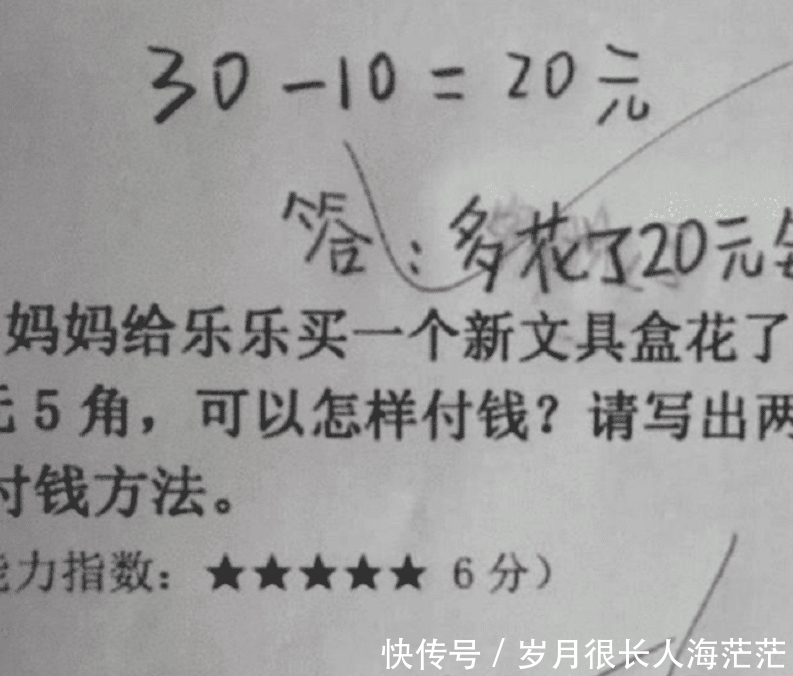 30-10=20元
答:多花了20元
妈妈给乐乐买一个新文具盒花了
5角，可以怎样付钱？请写出两
付钱方法。
力指数：★★★★★ 6分）
快传号 / 岁月很长人海茫茫